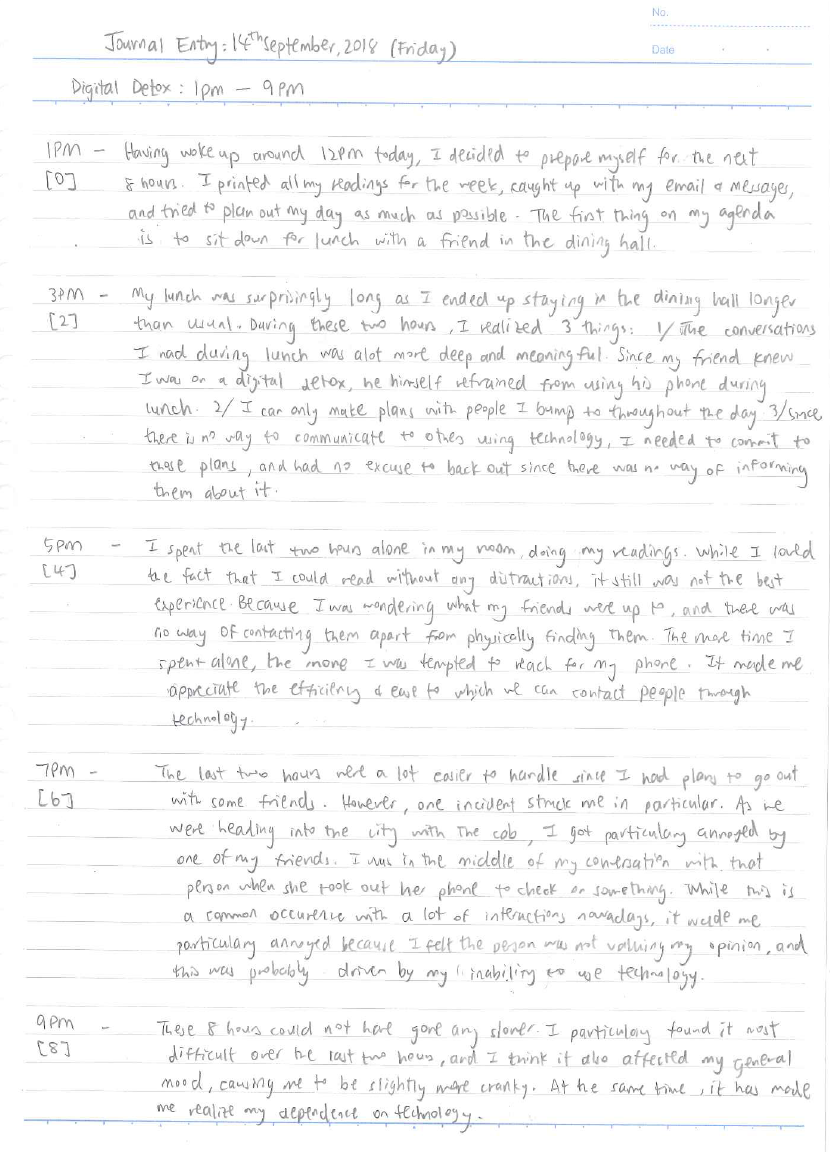 No.
Journal Entry: 14th September, 2018 (Friday)
Date
Digital Detox : 1pm – 9PM
1PM – Having woke up around 12PM today, I decided to prepare myself for the next
[0] 8 hours. I printed all my readings for the week, caught up with my email & messages,
and tried to plan out my day as much as possible. The first thing on my agenda
is to sit down for lunch with a friend in the dining hall.
3PM – My lunch was surprisingly long as I ended up staying in the dining hall longer
[2] than usual. During these two hours, I realized 3 things: 1/ The conversations
I had during lunch was alot more deep and meaningful. Since my friend knew
I was on a digital detox, he himself refrained from using his phone during
lunch. 2/ I can only make plans with people I bump to throughout the day 3/ since
there is no way to communicate to others using technology, I needed to commit to
those plans, and had no excuse to back out since there was no way of informing
them about it.
5pm – I spent the last two hours alone in my room, doing my readings. While I loved
[4] the fact that I could read without any distractions, it still was not the best
experience. Because I was wondering what my friends were up to, and there was
no way of contacting them apart from physically finding them. The more time I
spent alone, the more I was tempted to reach for my phone. It made me
appreciate the efficiency & ease to which we can contact people through
technology.
7PM – The last two hours were a lot easier to handle since I had plans to go out
[6] with some friends. However, one incident struck me in particular. As we
were heading into the city with the cab, I got particulary annoyed by
one of my friends. I was in the middle of my conversation with that
person when she took out her phone to check on something. While this is
a common occurence with a lot of interactions nowadays, it made me
particulary annoyed because I felt the person was not valuing my opinion, and
this was probably driven by my inability to use technology.
9PM – These 8 hours could not have gone any slower. I particulary found it most
[8] difficult over the last two hours, and I think it also affected my general
mood, causing me to be slightly more cranky. At the same time, it has made
me realize my dependence on technology.